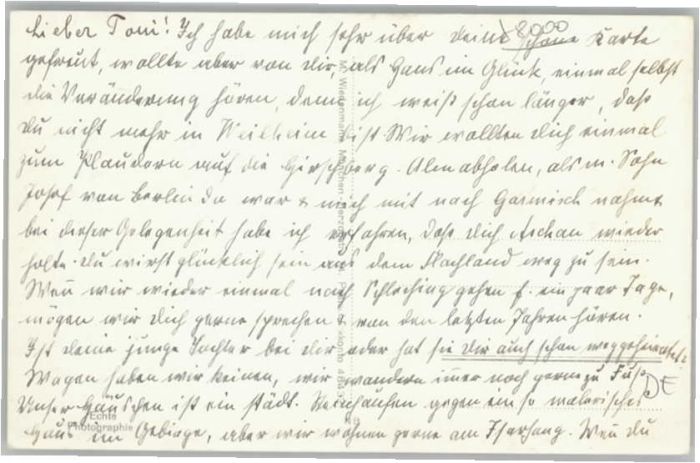 Lieber Toni! Ich habe mich sehr über deine schöne Karte
8000
gefreut, wollte aber von dir, als Hans im Glück, einmal selbst
die Veränderung hören, denn ich weiß schon länger, daß
du nicht mehr in Weilheim bist Wir wollten dich einmal
zum Plaudern auf die Hirschberg-Alm abholen, als m. Sohn
Josef von Berlin da war & mich mit nach Garmisch nahm &
bei dieser Gelegenheit habe ich erfahren, daß dich Aschau wieder
holte. Du wirst glücklich sein aus dem Flachland weg zu sein.
Wenn wir wieder einmal nach Schleching gehen f. ein paar Tage,
mögen wir dich gerne sprechen & von den letzten Jahren hören.
Ist deine junge Tochter bei dir oder hat sie dir auch schon weggeheiratet?
Wagen haben wir keinen, wir wandern immer noch gerne zu Fuß
DE
Unser Häuschen ist ein städt. gegen ein so malerisches
Haus im Gebirge, aber wir wohnen gerne am Isarhang. Wenn du
Echte
Photographie